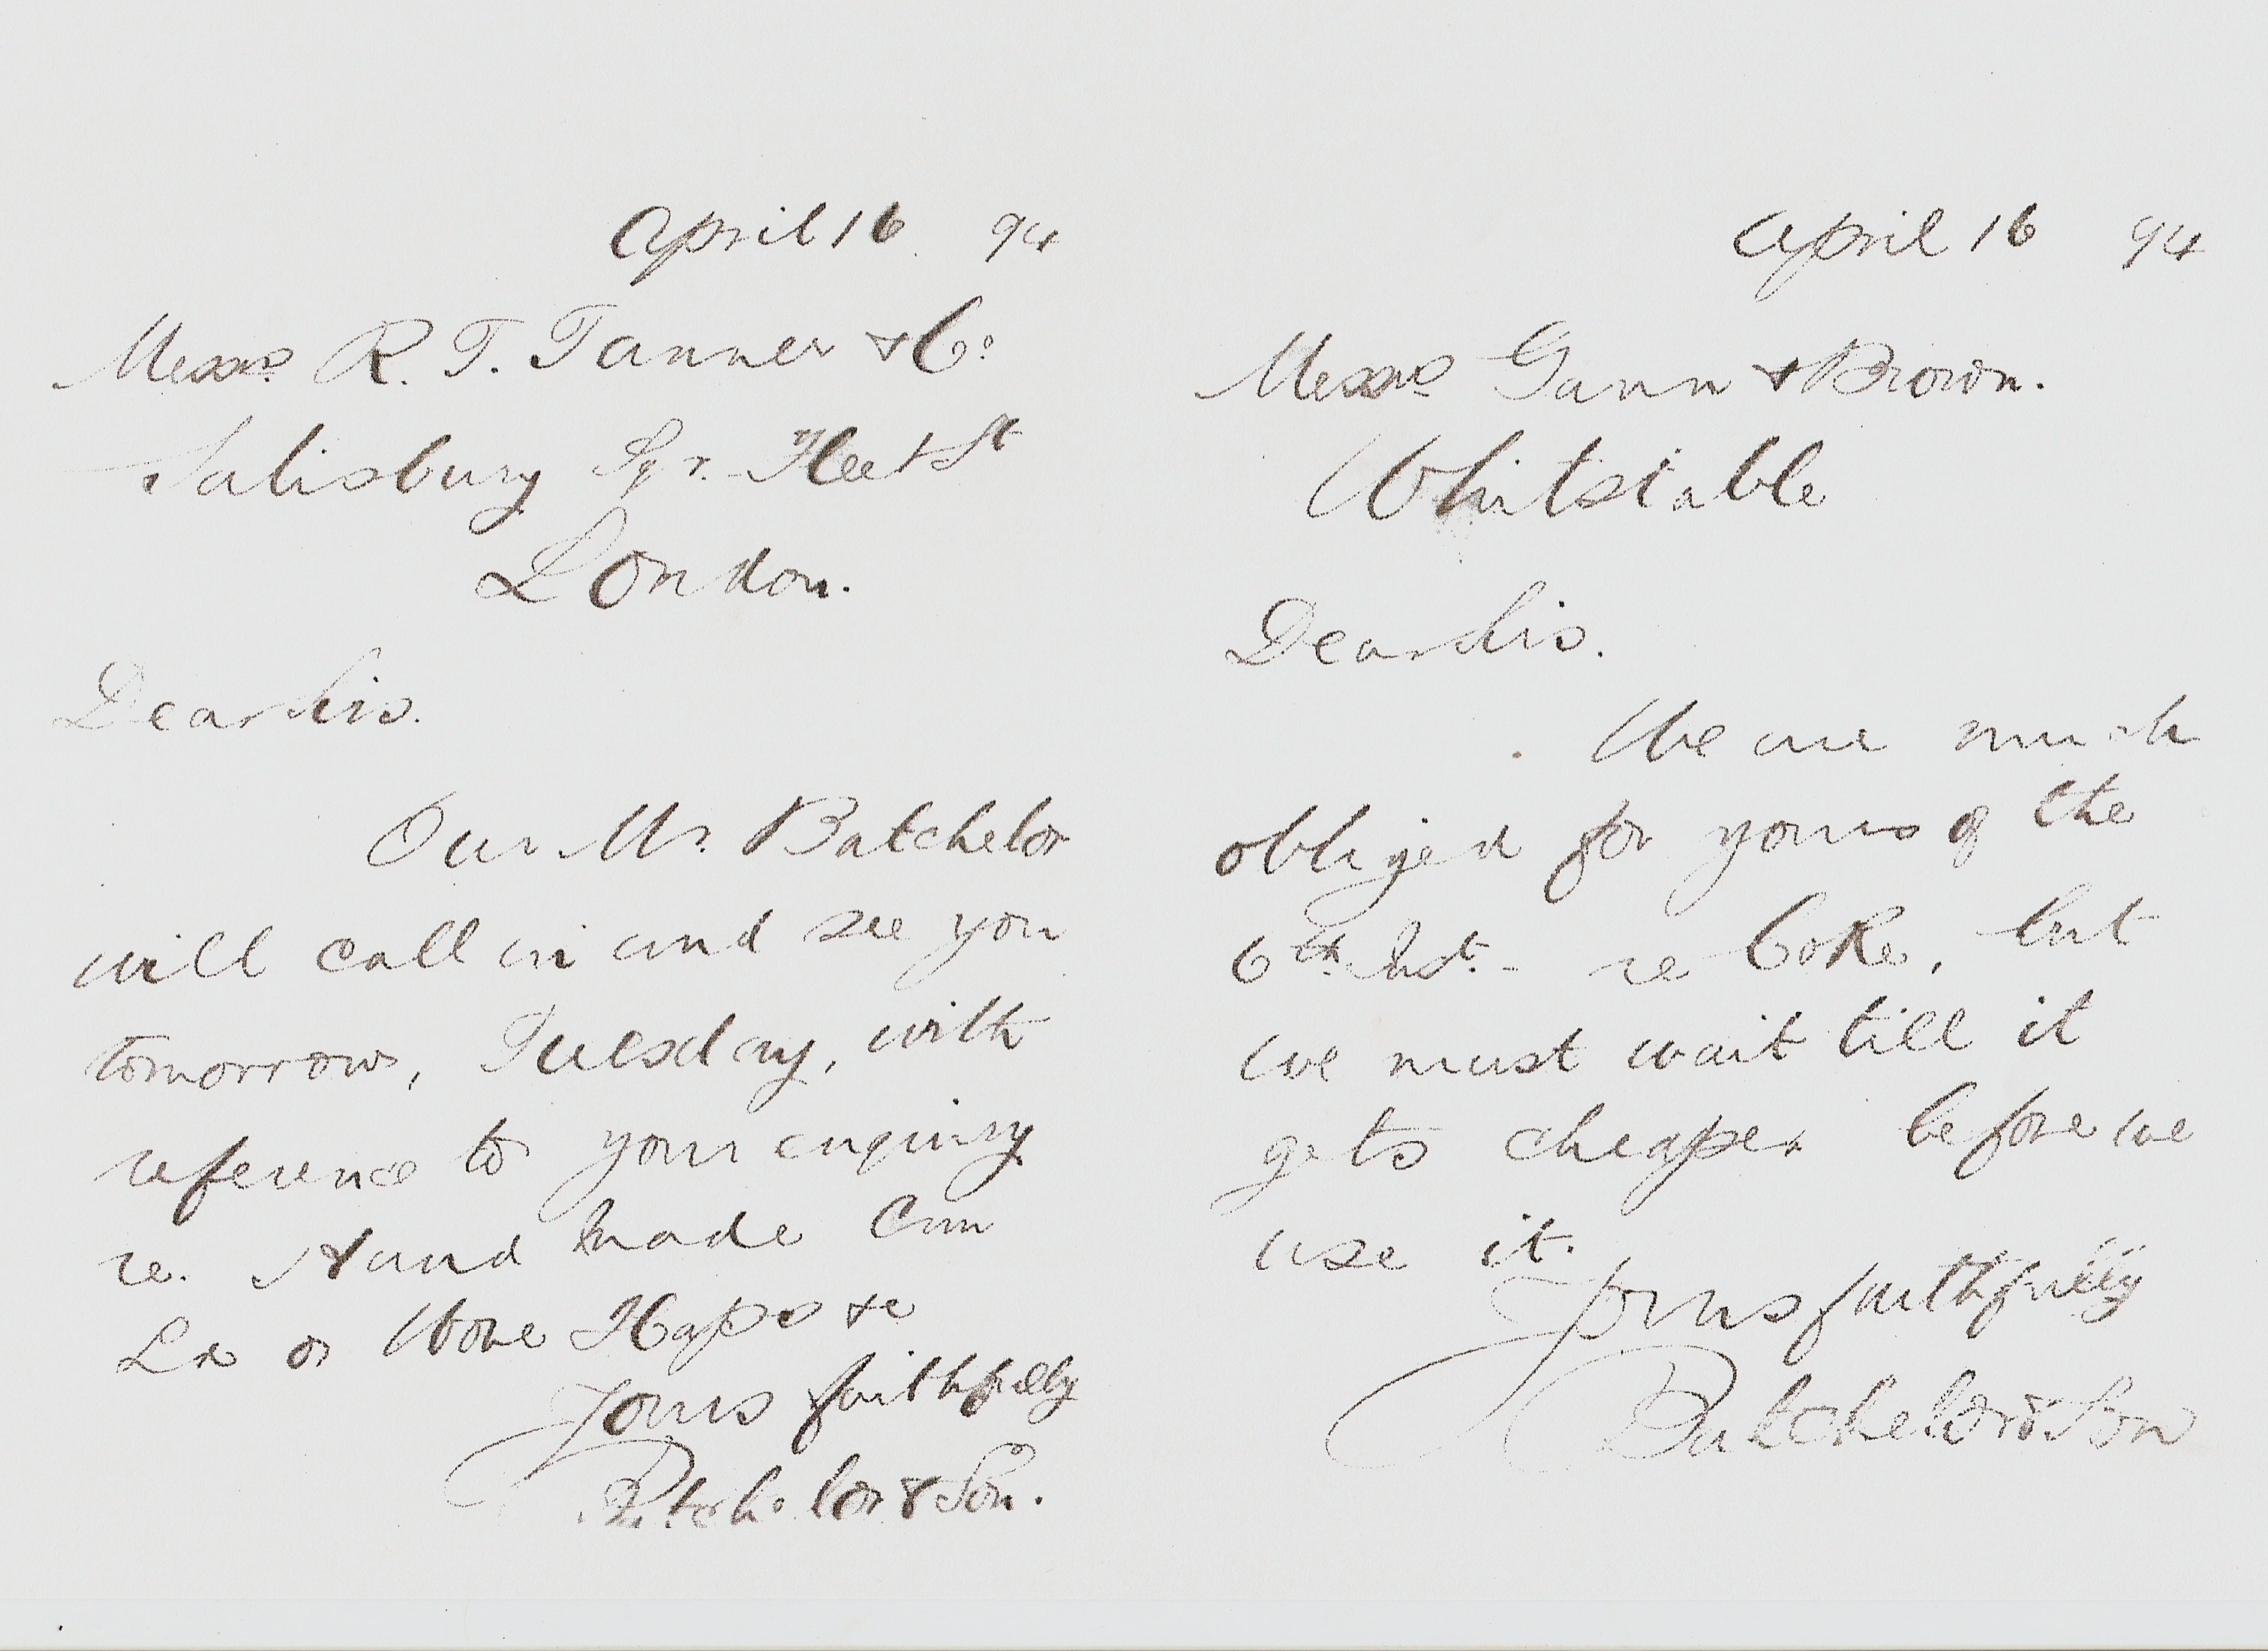 April 16 94
Messrs R. T. Tanner & Co
Salisbury Sqr. Fleet St
London.
Dear Sirs.
Our Mr. Batchelor
will call in and see you
tomorrow, Tuesday, with
reference to your enquiry
re. Hand made Cm
or Wove &c
Yours faithfully
Batchelor & Son.
April 16 94
Messrs Gann & Brown.
Whitstable
Dear Sirs.
We are much
obliged for yours of the
6th Inst. - re Coke, but
we must wait till it
gets cheaper before we
use it.
Yours faithfully
Batchelor & Son